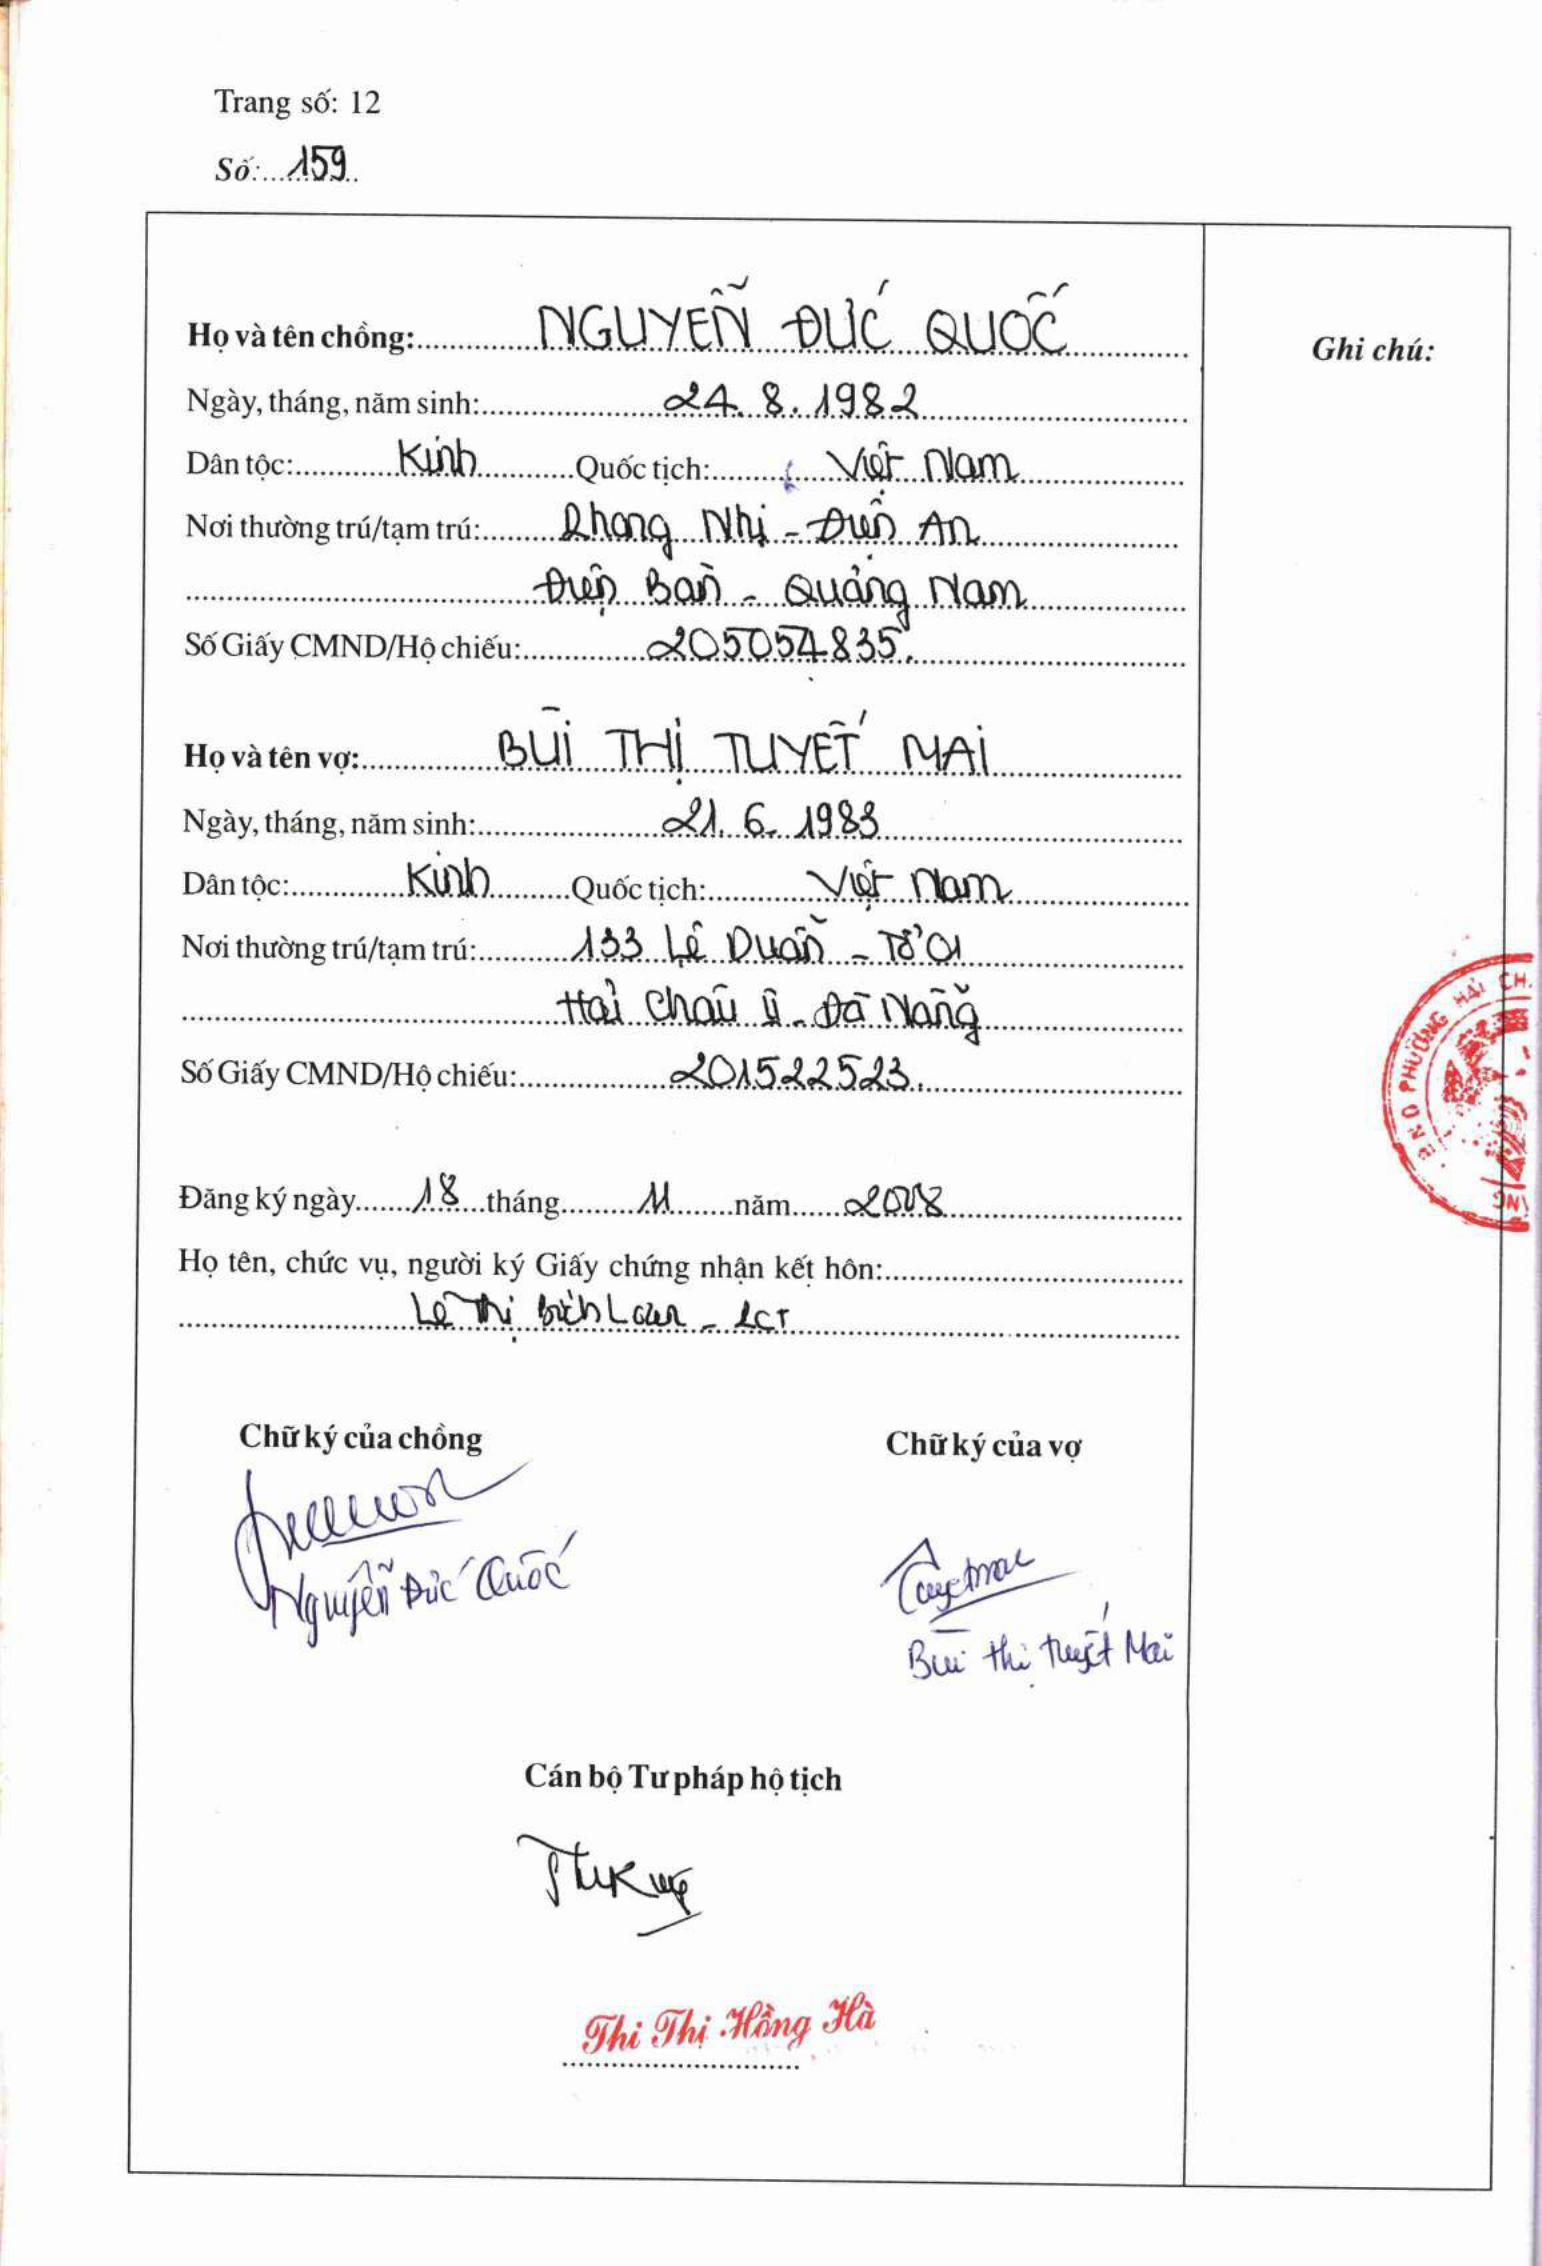 Trang số: 12
Số: 159
Họ và tên chồng: NGUYỄN ĐỨC QUỐC
Ghi chú:
Ngày, tháng, năm sinh: 24.8.1982
Dân tộc: Kinh Quốc tịch: Việt Nam
Nơi thường trú/tạm trú: Phong Nhị - Điện An
Điện Bàn - Quảng Nam
Số Giấy CMND/Hộ chiếu: 205054835.
Họ và tên vợ: BÙI THỊ TUYẾT MAI
Ngày, tháng, năm sinh: 21.6.1983
Dân tộc: Kinh Quốc tịch: Việt Nam
Nơi thường trú/tạm trú: 133 Lê Duẩn - Tổ 01
Hải Châu II - Đà Nẵng
Số Giấy CMND/Hộ chiếu: 201522523.
Đăng ký ngày 18 tháng 11 năm 2008
Họ tên, chức vụ, người ký Giấy chứng nhận kết hôn:
Lê Thị Bích Loan - PCT
Chữ ký của chồng
Chữ ký của vợ
Nguyễn Đức Quốc
Bùi thị tuyết Mai
Cán bộ Tư pháp hộ tịch
Thi Thị Hồng Hà
PHƯỜNG HẢI CH